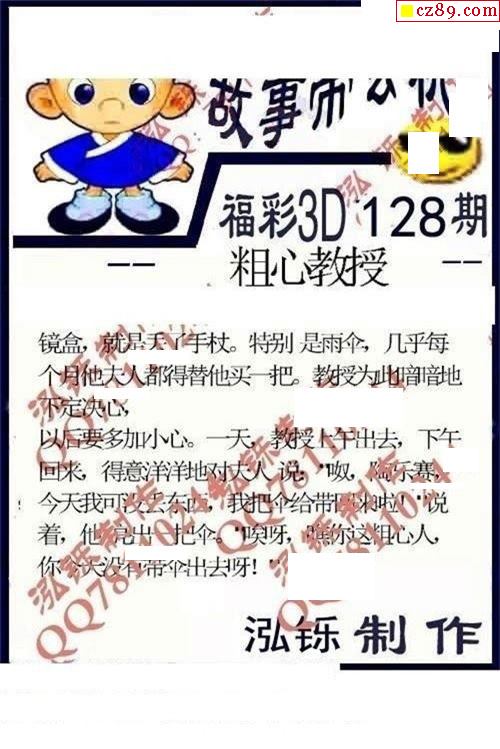 cz89.com
故事
福彩3D 128期
-- 粗心教授 --
镜盒，就是丢了手杖。特别 是雨伞，几乎每
个月他夫人都得替他买一把。教授为此暗暗地
下定决心，
以后要多加小心。一天，教授上午出去，下午
回来，得意洋洋地对夫人 说，"
今天我可没丢东西，我把伞给带回来啦！"说
着，他 出一把伞。"唉呀，瞧你这粗心人，
你今天没有带伞出去呀！"
泓铄制作
泓铄制作
QQ78111024